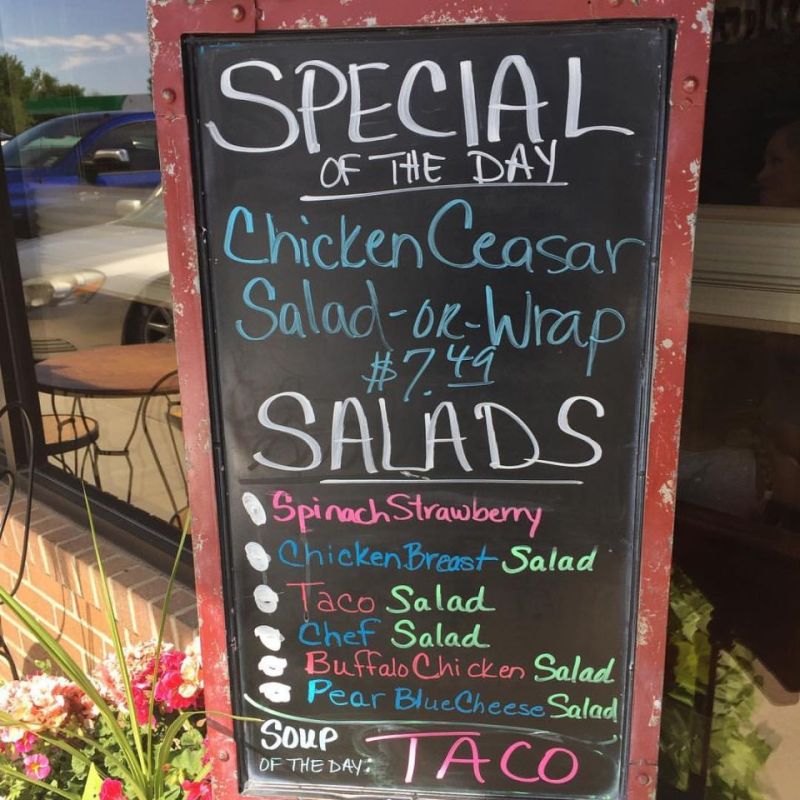 SPECIAL
OF THE DAY
Chicken Ceasar
Salad-OR-Wrap
$7.49
SALADS
Spinach Strawberry
Chicken Breast Salad
Taco Salad
Chef Salad
Buffalo Chicken Salad
Pear Blue Cheese Salad
SOUP
OF THE DAY: TACO